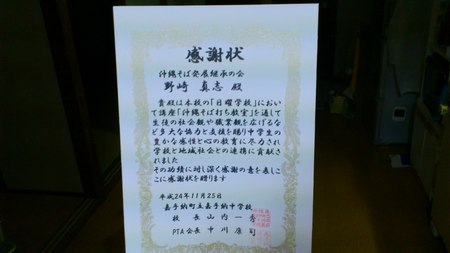 感謝状
沖縄そば発展継承の会
野崎 真志 殿
貴殿は本校の「日曜学校」におい
て講座「沖縄そば打ち教室」を通して
生徒の社会観や職業観を広げるな
ど多大な協力と支援を賜り中学生の
豊かな感性と心の教育に尽力され
学校と地域社会との連携に貢献され
ました
その功績に対し深く感謝の意を表しこ
こに感謝状を贈ります
平成24年11月25日
嘉手納町立嘉手納中学校
校長 山内一秀
PTA会長 中川康司